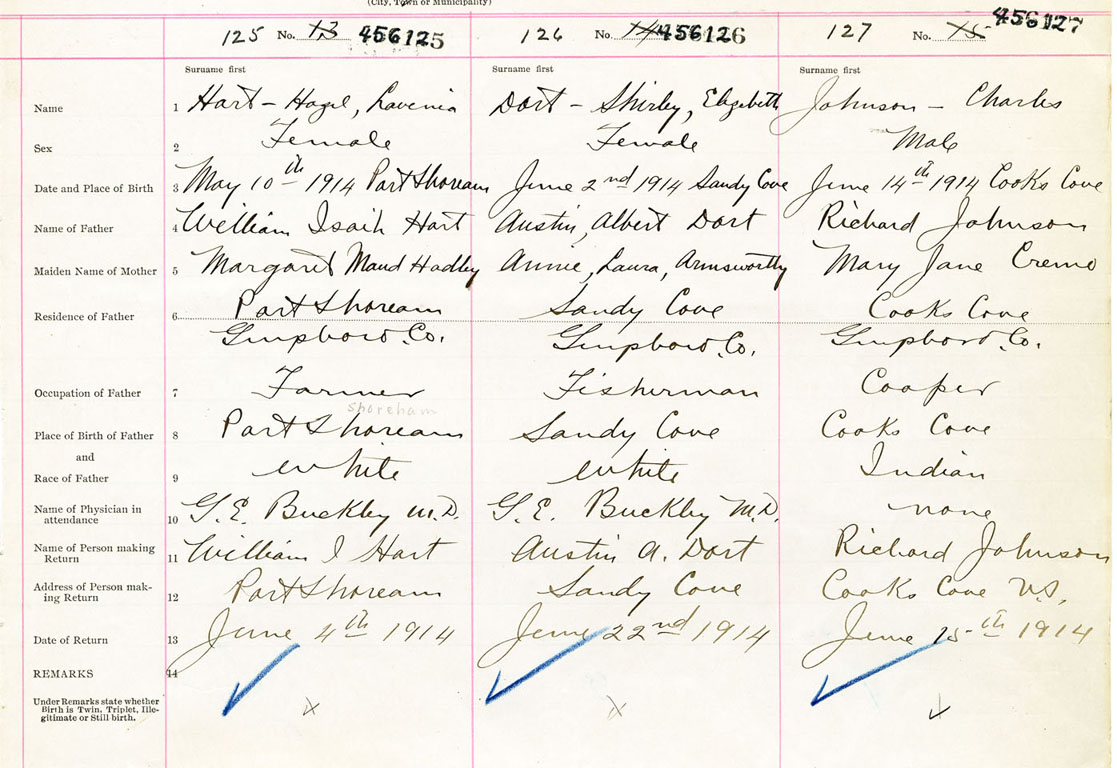 (City, Town or Municipality)
125 No. 13 456125 126 No. 14 456126 127 No. 15 456127
Surname first Surname first Surname first
Name 1 Hart – Hazel, Lavenia Dort – Shirley, Elizabeth Johnson – Charles
Sex 2 Female Female Male
Date and Place of Birth 3 May 10th 1914 Port Shoream June 2nd 1914 Sandy Cove June 14th 1914 Cooks Cove
Name of Father 4 William Isaih Hart Austin, Albert Dort Richard Johnson
Maiden Name of Mother 5 Margaret Maud Hadley Annie, Laura, Armsworthy Mary Jane Cremo
Residence of Father 6 Port Shoream Sandy Cove Cooks Cove
Guysboro Co. Guysboro Co. Guysboro Co.
Occupation of Father 7 Farmer Fisherman Cooper
shoreham
Place of Birth of Father 8 Port Shoream Sandy Cove Cooks Cove
and
Race of Father 9 White White Indian
Name of Physician in
attendance 10 G. E. Buckley M.D. G. E. Buckley M.D. none
Name of Person making
Return 11 William I Hart Austin A. Dort Richard Johnson
Address of Person mak-
ing Return 12 Port Shoream Sandy Cove Cooks Cove N.S.
Date of Return 13 June 4th 1914 June 22nd 1914 June 15th 1914
REMARKS 14
Under Remarks state whether
Birth is Twin, Triplet, Ille-
gitimate or Still birth.